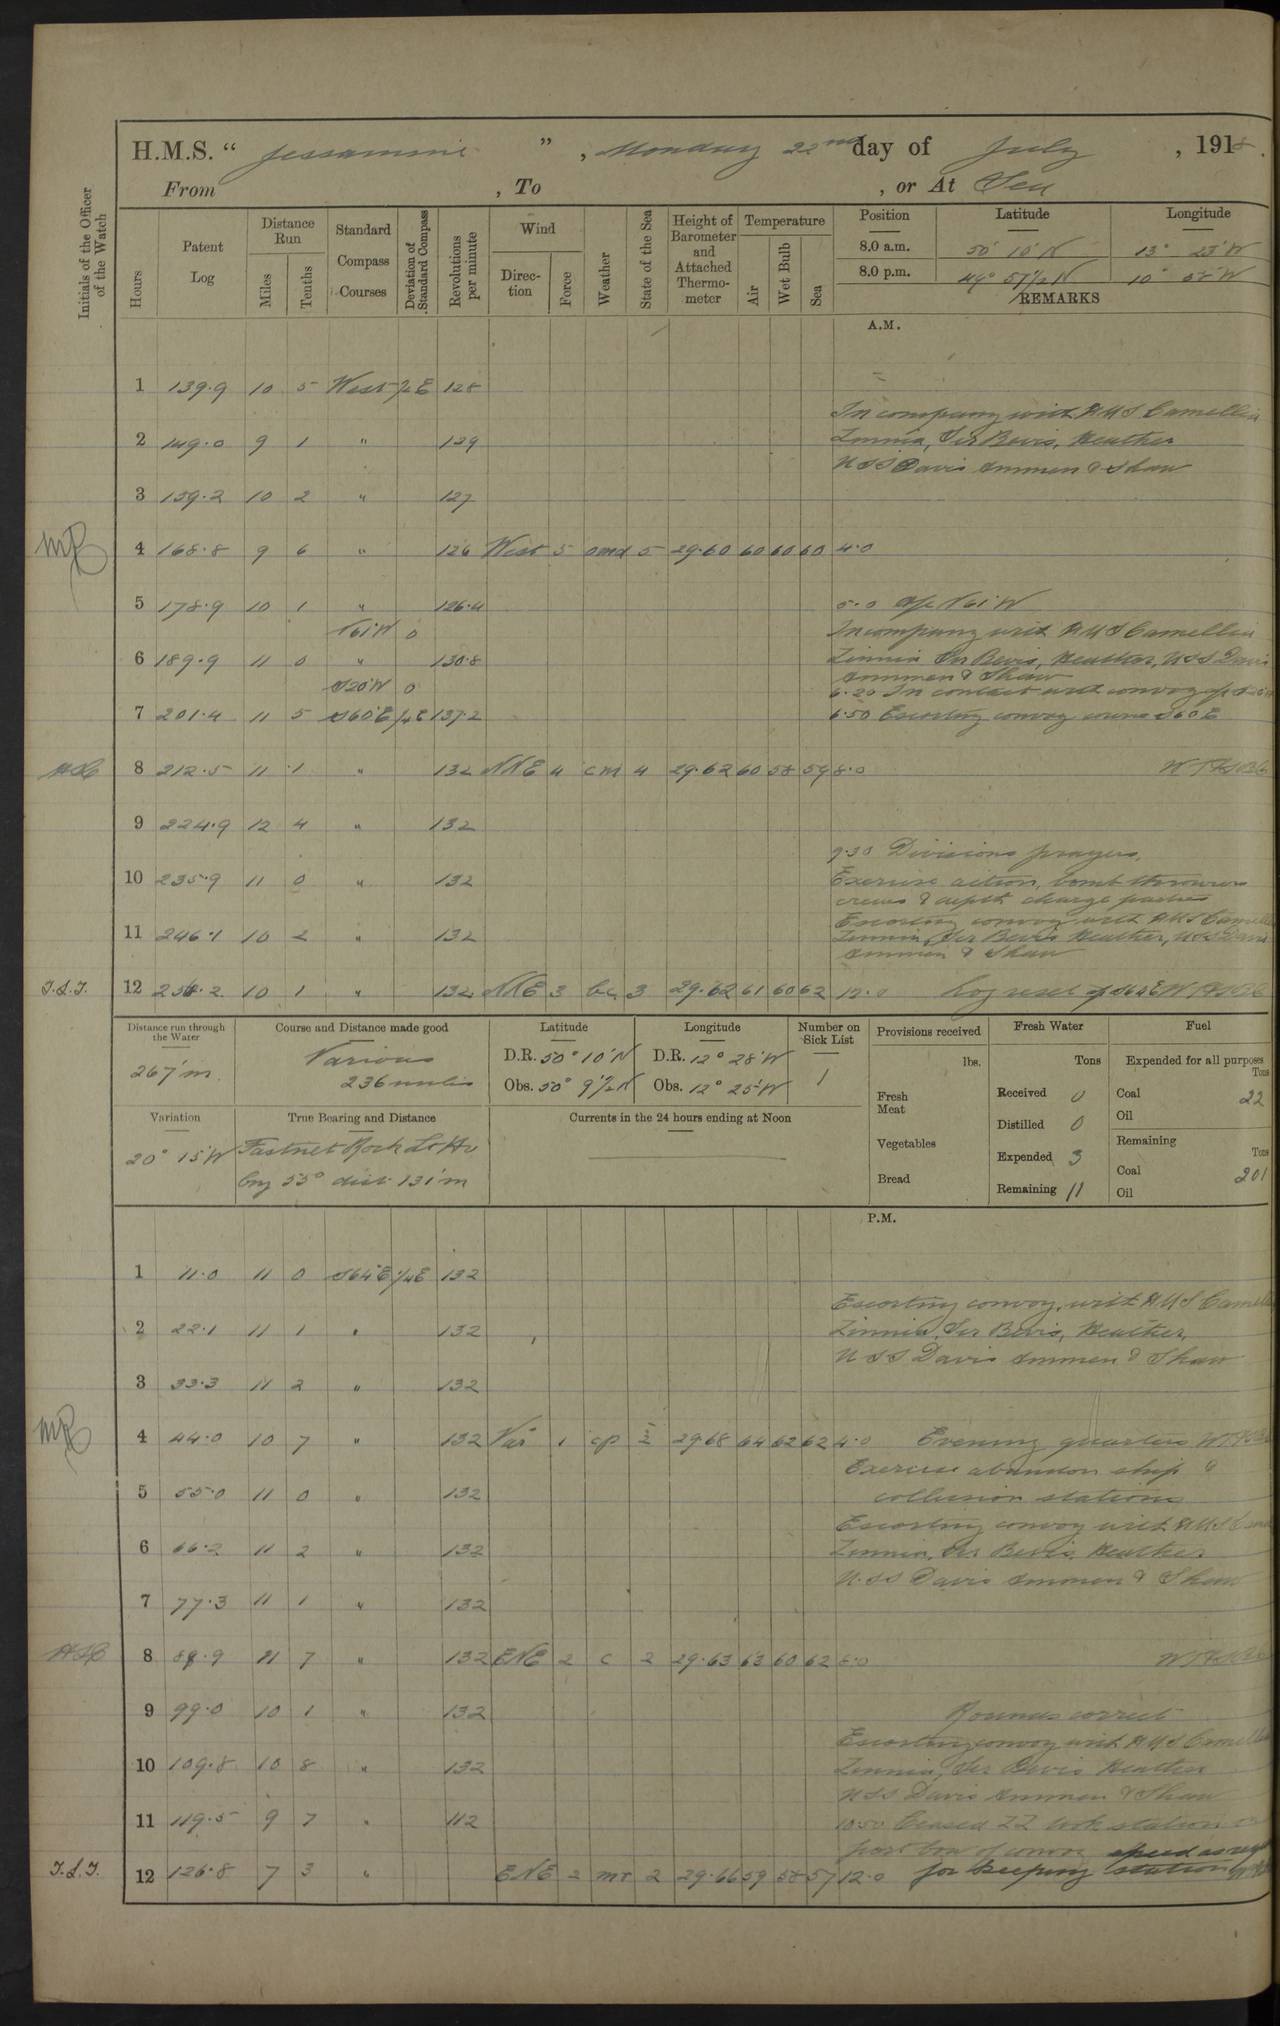 H.M.S. " Jessamine ", Monday 22nd day of July, 1918.
From , To , or At Sea
Initials of the Officer of the Watch
Hours
Patent Log
Distance Run
Miles
Tenths
Standard Compass Courses
Deviation of Standard Compass
Revolutions per minute
Wind
Direction
Force
Weather
State of the Sea
Height of Barometer and Attached Thermometer
Temperature
Air
Wet Bulb
Sea
Position Latitude Longitude
8.0 a.m. 50° 10' N 13° 23' W
8.0 p.m. 49° 57 1/2 N 10° W
REMARKS
A.M.
1 139.9 10 5 West 1/2 E 128
In company with HMS Camellia
2 149.0 9 1 " 129 Zinnia, Sir Bevis, Heather
USS Davis Ammen & Shaw
3 159.2 10 2 " 127
4 168.8 9 6 " 126 West 5 omd 5 29.60 60 60 60 4.0
5 178.9 10 1 " 126.4 5.0 a/c N61°W
N61°W 0 In company with HMS Camellia
6 189.9 11 0 " 130.8 Zinnia Sir Bevis, Heather, USS Davis
Ammen & Shaw
S20°W 0 6.20 In contact with convoy a/c
7 201.4 11 5 S60°E 1/4 E 137.2 6.50 Escorting convoy course S60E
8 212.5 11 1 " 132 NNE 4 cm 4 29.62 60 58 59 8.0
9 224.9 12 4 " 132
9.30 Divisions prayers,
10 235.9 11 0 " 132 Exercise action, bomb throwers
crews & depth charge parties
Escorting convoy with HMS Camellia
11 246.1 10 2 " 132 Zinnia, Sir Bevis Heather, USS Davis
Ammen & Shaw
J.S.J. 12 256.2 10 1 " 132 NNE 3 bc 3 29.62 61 60 62 12.0 Log reset a/c S64E
Distance run through the Water
267'm
Course and Distance made good
Various
236 miles
Latitude
D.R. 50° 10' N
Obs. 50° 9 1/2 N
Longitude
D.R. 12° 28' W
Obs. 12° 25' W
Number on Sick List
1
Provisions received
lbs.
Fresh Meat
Vegetables
Bread
Fresh Water
Tons
Received 0
Distilled 0
Expended 3
Remaining 11
Fuel
Expended for all purposes
Tons
Coal 22
Oil
Remaining
Tons
Coal 201
Oil
Variation
20° 15' W
True Bearing and Distance
Fastnet Rock Lt Ho
brg 55° dist 131'm
Currents in the 24 hours ending at Noon
P.M.
1 11.0 11 0 S64°E 1/4 E 132
Escorting convoy, with HMS Camellia
2 22.1 11 1 " 132 Zinnia, Sir Bevis, Heather,
USS Davis Ammen & Shaw
3 33.3 11 2 " 132
4 44.0 10 7 " 132 Var 1 cp 2 29.68 64 62 62 4.0 Evening quarters
Exercise abandon ship &
5 55.0 11 0 " 132 collision stations
Escorting convoy with HMS
6 66.2 11 2 " 132 Zinnia, Sir Bevis, Heather
U.SS Davis Ammen & Shaw
7 77.3 11 1 " 132
8 88.9 11 7 " 132 ENE 2 c 2 29.63 63 60 62 8.0
9 99.0 10 1 " 132 Rounds correct
Escorting convoy with HMS Camellia
10 109.8 10 8 " 132 Zinnia, Sir Bevis Heather
USS Davis Ammen & Shaw
11 119.5 9 7 " 112 10.50 Ceased ZZ took station on
port bow of convoy speed as req
J.S.J. 12 126.8 7 3 " ENE 2 mr 2 29.66 59 58 57 12.0 for keeping station